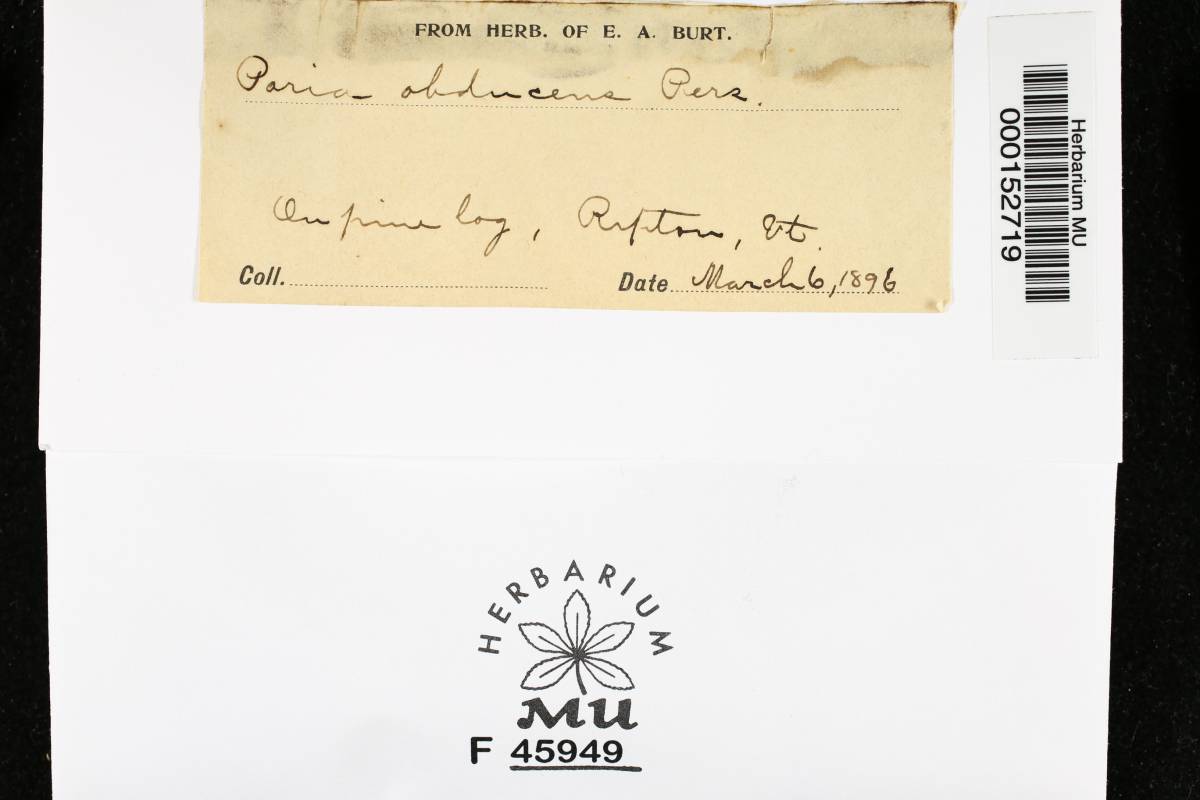 FROM HERB. OF E. A. BURT.
Poria obducens Pers.
On pine log, Ripton, Vt.
Coll. Date March 6, 1896
Herbarium MU
000152719
HERBARIUM
MU
F 45949